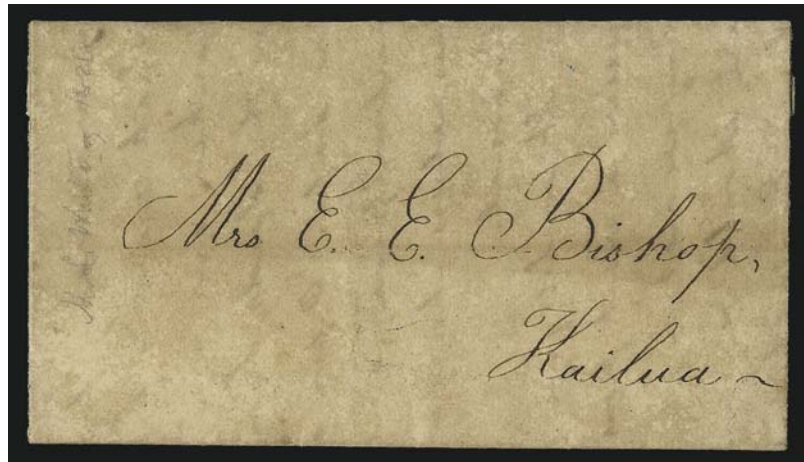 Mrs E. E. Bishop,
Kailua ~